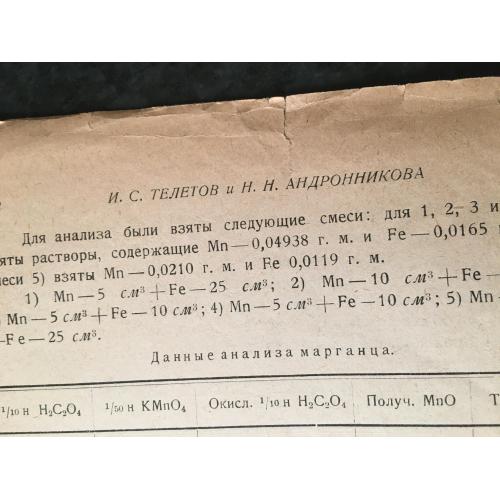 И. С. ТЕЛЕТОВ и Н. Н. АНДРОННИКОВА
Для анализа были взяты следующие смеси: для 1, 2, 3 и
яты растворы, содержащие Mn—0,04938 г. м. и Fe—0,0165 г
меси 5) взяты Mn—0,0210 г. м. и Fe 0,0119 г. м.
1) Mn—5 см³+Fe—25 см³; 2) Mn—10 см³+Fe—
Mn—5 см³+Fe—10 см³; 4) Mn—5 см³+Fe—10 см³; 5) Mn—
Fe—25 см³.
Данные анализа марганца.
1/10 н H₂C₂O₄ 1/50 н KMnO₄ Окисл. 1/10 н H₂C₂O₄ Получ. MnO Т